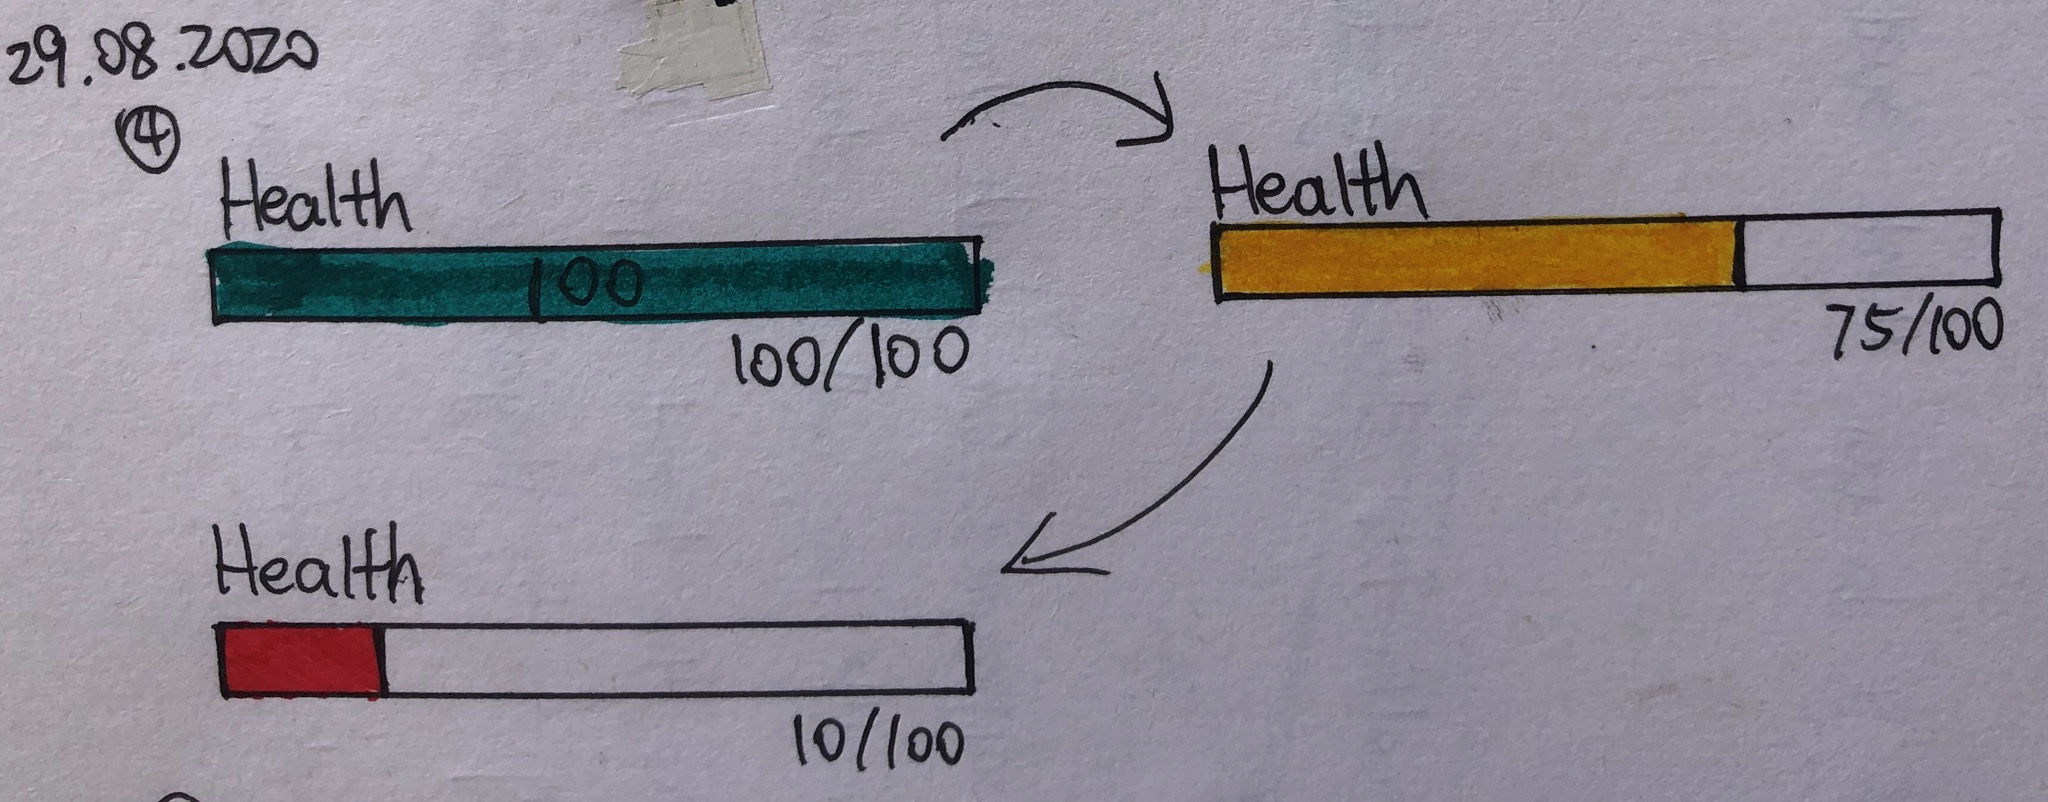 29.08.2020
④
Health
100
100/100
Health
75/100
Health
10/100